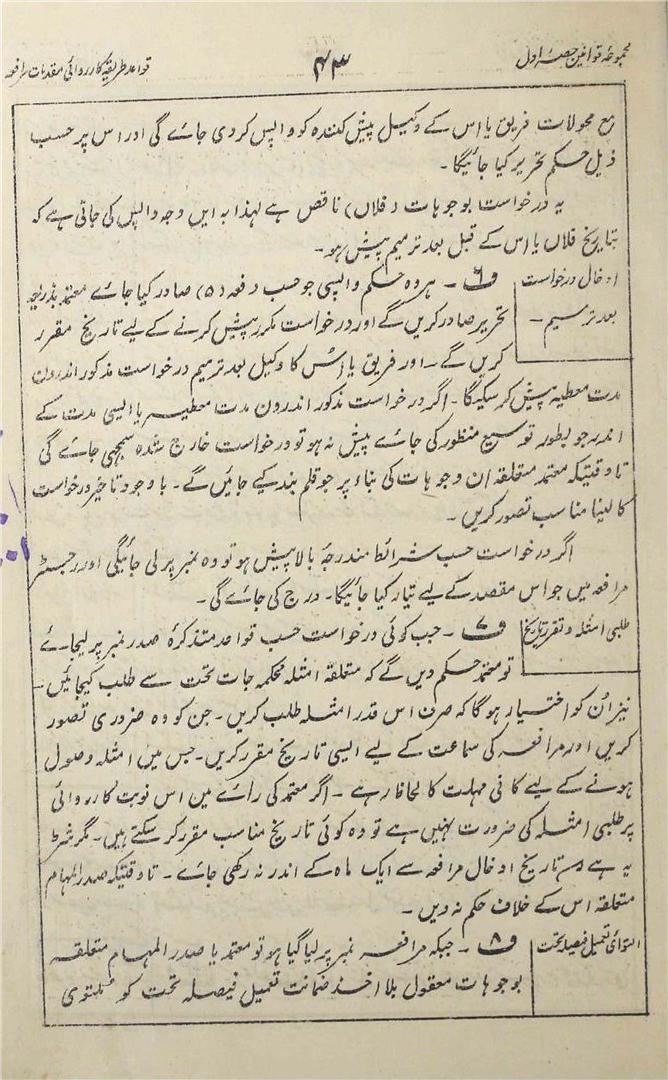 مجموعۂ قوانین حصہ اول
۴۳
قواعد طریقۂ کارروائی مقدمات مرافعہ
مع محولات فریق یا اس کے وکیل پیش کنندہ کو واپس کر دی جائے گی اور اس پر حسب
ذیل حکم تحریر کیا جائیگا۔
یہ درخواست بوجوہات (فلاں) ناقص ہے لہذا بہ ایں وجہ واپس کی جاتی ہے کہ
بتاریخ فلاں یا اس کے قبل بعد ترمیم پیش ہو۔
ادخال درخواست
بعد ترمیم۔
ف ۶۔ ہر وہ حکم واپسی جو حسب دفعہ (۵) صادر کیا جائے معتمد بذریعہ
تحریر صادر کریں گے اور درخواست مکرر پیش کرنے کے لیے تاریخ مقرر
کریں گے۔ اور فریق یا اس کا وکیل بعد ترمیم درخواست مذکور اندرون
مدت معطیہ پیش کر سکیگا۔ اگر درخواست مذکور اندرون مدت معطیہ یا ایسی مدت کے
اندر جو بطور توسیع منظور کی جائے پیش نہ ہو تو درخواست خارج شدہ سمجھی جائے گی
تاوقتیکہ معتمد متعلقہ ان وجوہات کی بناء پر جو قلم بند کیے جائیں گے۔ باوجود تاخیر درخواست
کا لینا مناسب تصور کریں۔
اگر درخواست حسب شرائط مندرجۂ بالا پیش ہو تو وہ نمبر پر لی جائیگی اور رجسٹر
مرافعہ میں جو اس مقصد کے لیے تیار کیا جائیگا۔ درج کی جائے گی۔
طلبی امثلہ و تقرر تاریخ
ف ۷۔ جب کوئی درخواست حسب قواعد متذکرۂ صدر نمبر پر لیجائے
تو معتمد حکم دیں گے کہ متعلقہ امثلہ محکمہ جات تحت سے طلب کیجائیں۔
نیز ان کو اختیار ہوگا کہ صرف اس قدر امثلہ طلب کریں۔ جن کو وہ ضروری تصور
کریں اور مرافعہ کی سماعت کے لیے ایسی تاریخ مقرر کریں۔ جس میں امثلہ وصول
ہونے کے لیے کافی مہلت کا لحاظ رہے۔ اگر معتمد کی رائے میں اس نوبت کارروائی
پر طلبی امثلہ کی ضرورت نہیں ہے تو وہ کوئی تاریخ مناسب مقرر کر سکتے ہیں۔ مگر شرط
یہ ہے کہ تاریخ ادخال مرافعہ سے ایک ماہ کے اندر نہ رکھی جائے۔ تاوقتیکہ صدر المہام
متعلقہ اس کے خلاف حکم نہ دیں۔
التوائی تعمیل فیصلہ تحت
ف ۸۔ جبکہ مرافعہ نمبر پر لیا گیا ہو تو معتمد یا صدر المہام متعلقہ
بوجوہات معقول بلا اخذ ضمانت تعمیل فیصلہ تحت کو ملتوی